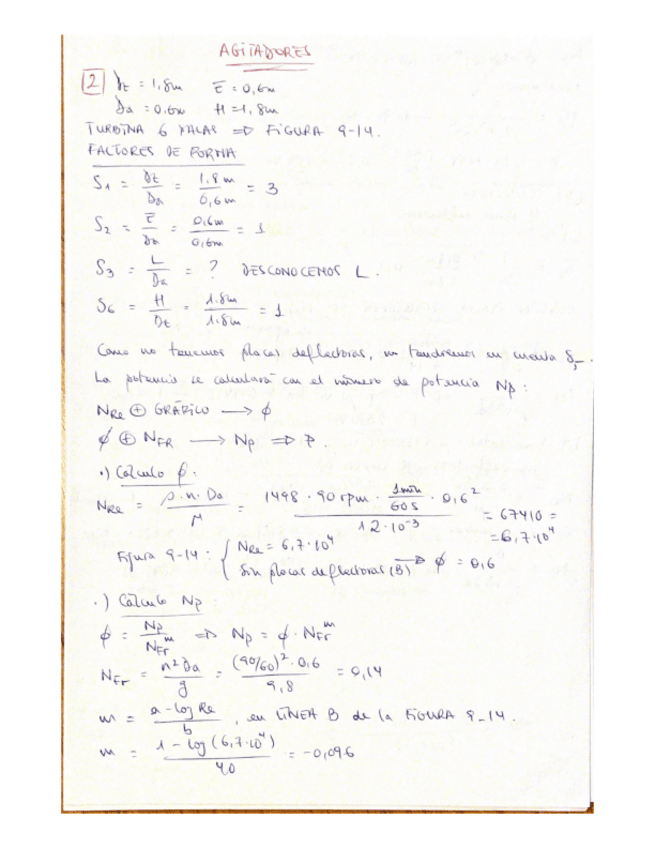 AGITADORES
2 Dt = 1,8m E = 0,6m
Da = 0,6m H = 1,8m
TURBINA 6 PALAS => FIGURA 9-14.
FACTORES DE FORMA
S1 = Dt/Da = 1,8 m/0,6 m = 3
S2 = E/Da = 0,6m/0,6m = 1
S3 = L/Da = ? DESCONOCEMOS L.
S6 = H/Dt = 1.8m/1.8m = 1
Como no tenemos placas deflectoras, no tendremos en cuenta S5.
La potencia se calculará con el número de potencia Np:
NRe ⊕ GRÁFICO → φ
φ ⊕ NFR → Np => P.
·) Cálculo φ:
NRe = ρ·n·Da/μ = 1498 · 90 rpm · 1min/60s · 0,6²/12·10⁻³ = 67410 =
= 6,7·10⁴
Figura 9-14: { NRe = 6,7·10⁴
Sin placas deflectoras (B) → φ = 0,6
·) Cálculo Np
φ = Np/NFr^m => Np = φ · NFr^m
NFr = n²Da/g = (90/60)²·0,6/9,8 = 0,14
m = a-log Re/b, en LÍNEA B de la FIGURA 9-14.
m = 1 - log (6,7·10⁴)/40 = -0,096